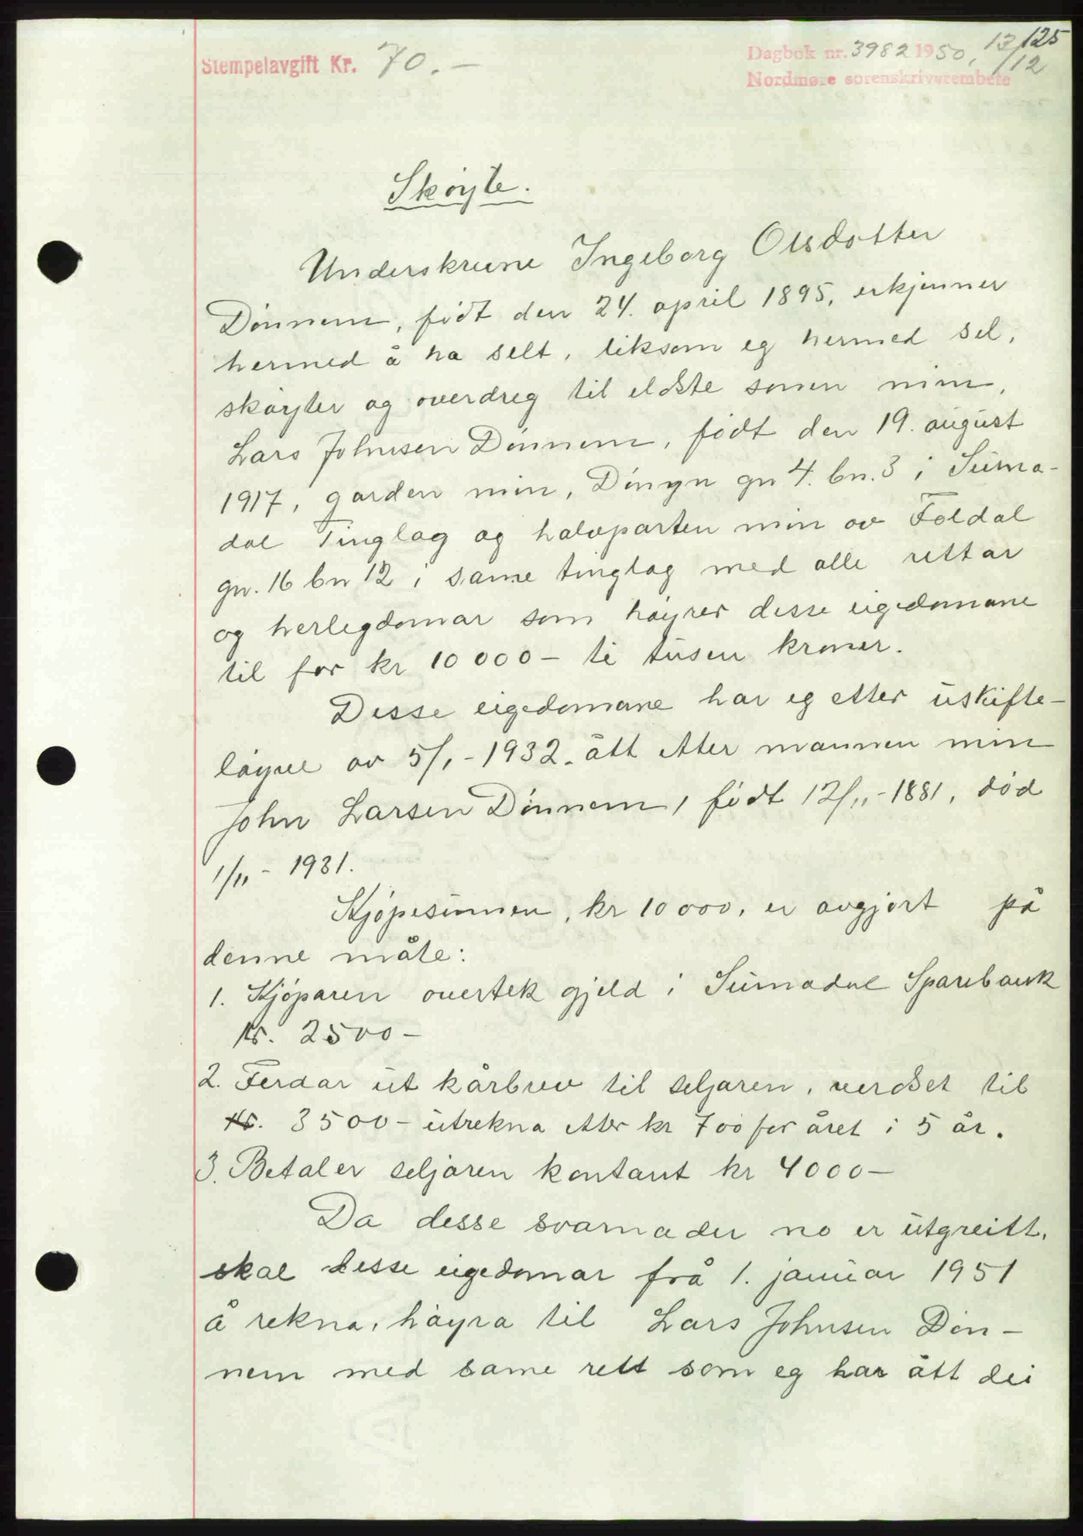 125
Stempelavgift Kr. 70.—
Dagbok nr. 3982 1950, 13/12
Nordmøre sorenskriverembete
Skøyte.
Underskrevne Ingeborg Olsdotter
Dønnem, født den 24. april 1895, erkjenner
hermed å ha selt, liksom eg hermed sel,
skøyter og overdreg til eldste sonen min,
Lars Johnsen Dønnem, født den 19. august
1917, garden min, Dønyn gn 4. bn. 3 i Surna-
dal Tinglag og halvparten min av Foldal
gn. 16 bn 12 i same tinglag med alle rettar
og herlegdomar som høyrer desse eigedomane
til for kr 10 000— ti tusen kroner.
Desse eigedomane har eg etter uskifte-
løyve av 5/1-1932. ått etter mannen min
John Larsen Dønnem, født 12/11-1881, død
1/11- 1931.
Kjøpesummen, kr 10 000, er avgjort på
denne måte:
1. Kjøparen overtek gjeld i Surnadal Sparebank
kr. 2500—
2. Ferdar ut kårbrev til seljaren, verdset til
kr. 3500— utrekna etter kr 700 for året i 5 år.
3. Betaler seljaren kontant kr 4000—
Da desse svarnader no er utgreitt,
skal desse eigedomar frå 1. januar 1951
å rekna, høyra til Lars Johnsen Døn-
nem med same rett som eg har ått dei